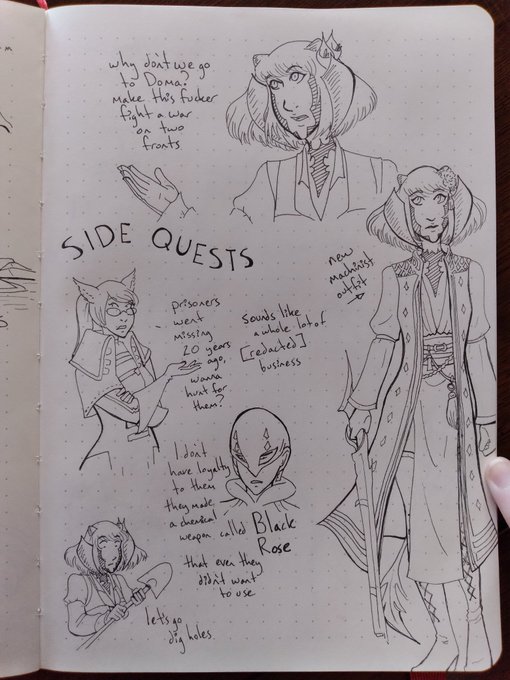 why don't we go
to Doma?
make this fucker
fight a war
on two
fronts
SIDE QUESTS
new
machinist
outfit
prisoners
went
missing
20 years
ago,
wanna
hunt for
them?
Sounds like
a whole lot of
[redacted]
business
I don't
have loyalty
to them
they made
a chemical
weapon called Black
Rose
that even they
didn't want
to use
let's go
dig holes